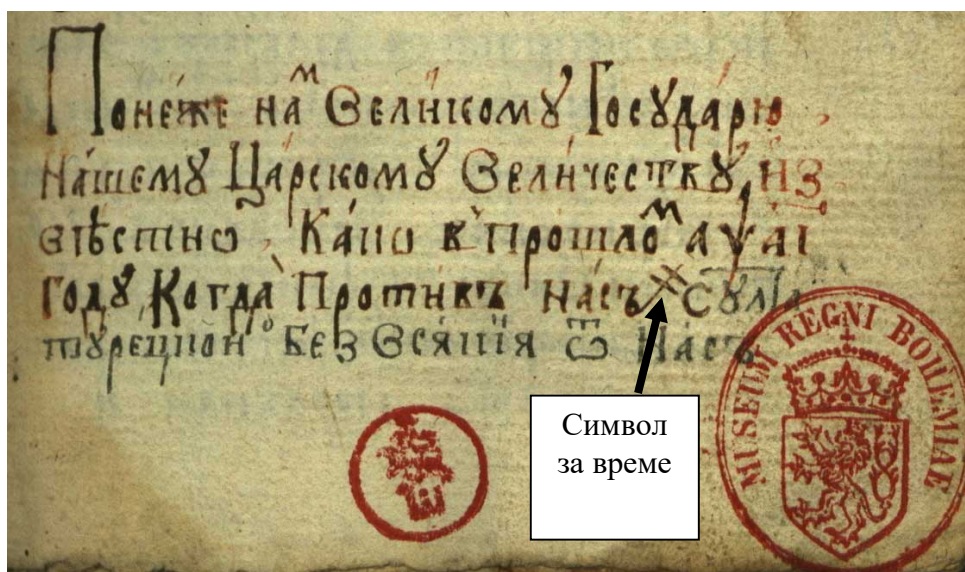 Поне́же наᷟ Вели́кому Госуда́рю
На́шему Ца́рскому Вели́честву, из
вѣстно, Ка́ко в Прошлоᷟ аѱаі
году Когда Противъ на́съ Сул
турецкои Без Всякия ѿ Насъ
Символ
за време
MUSEUM REGNI BOHEMIAE